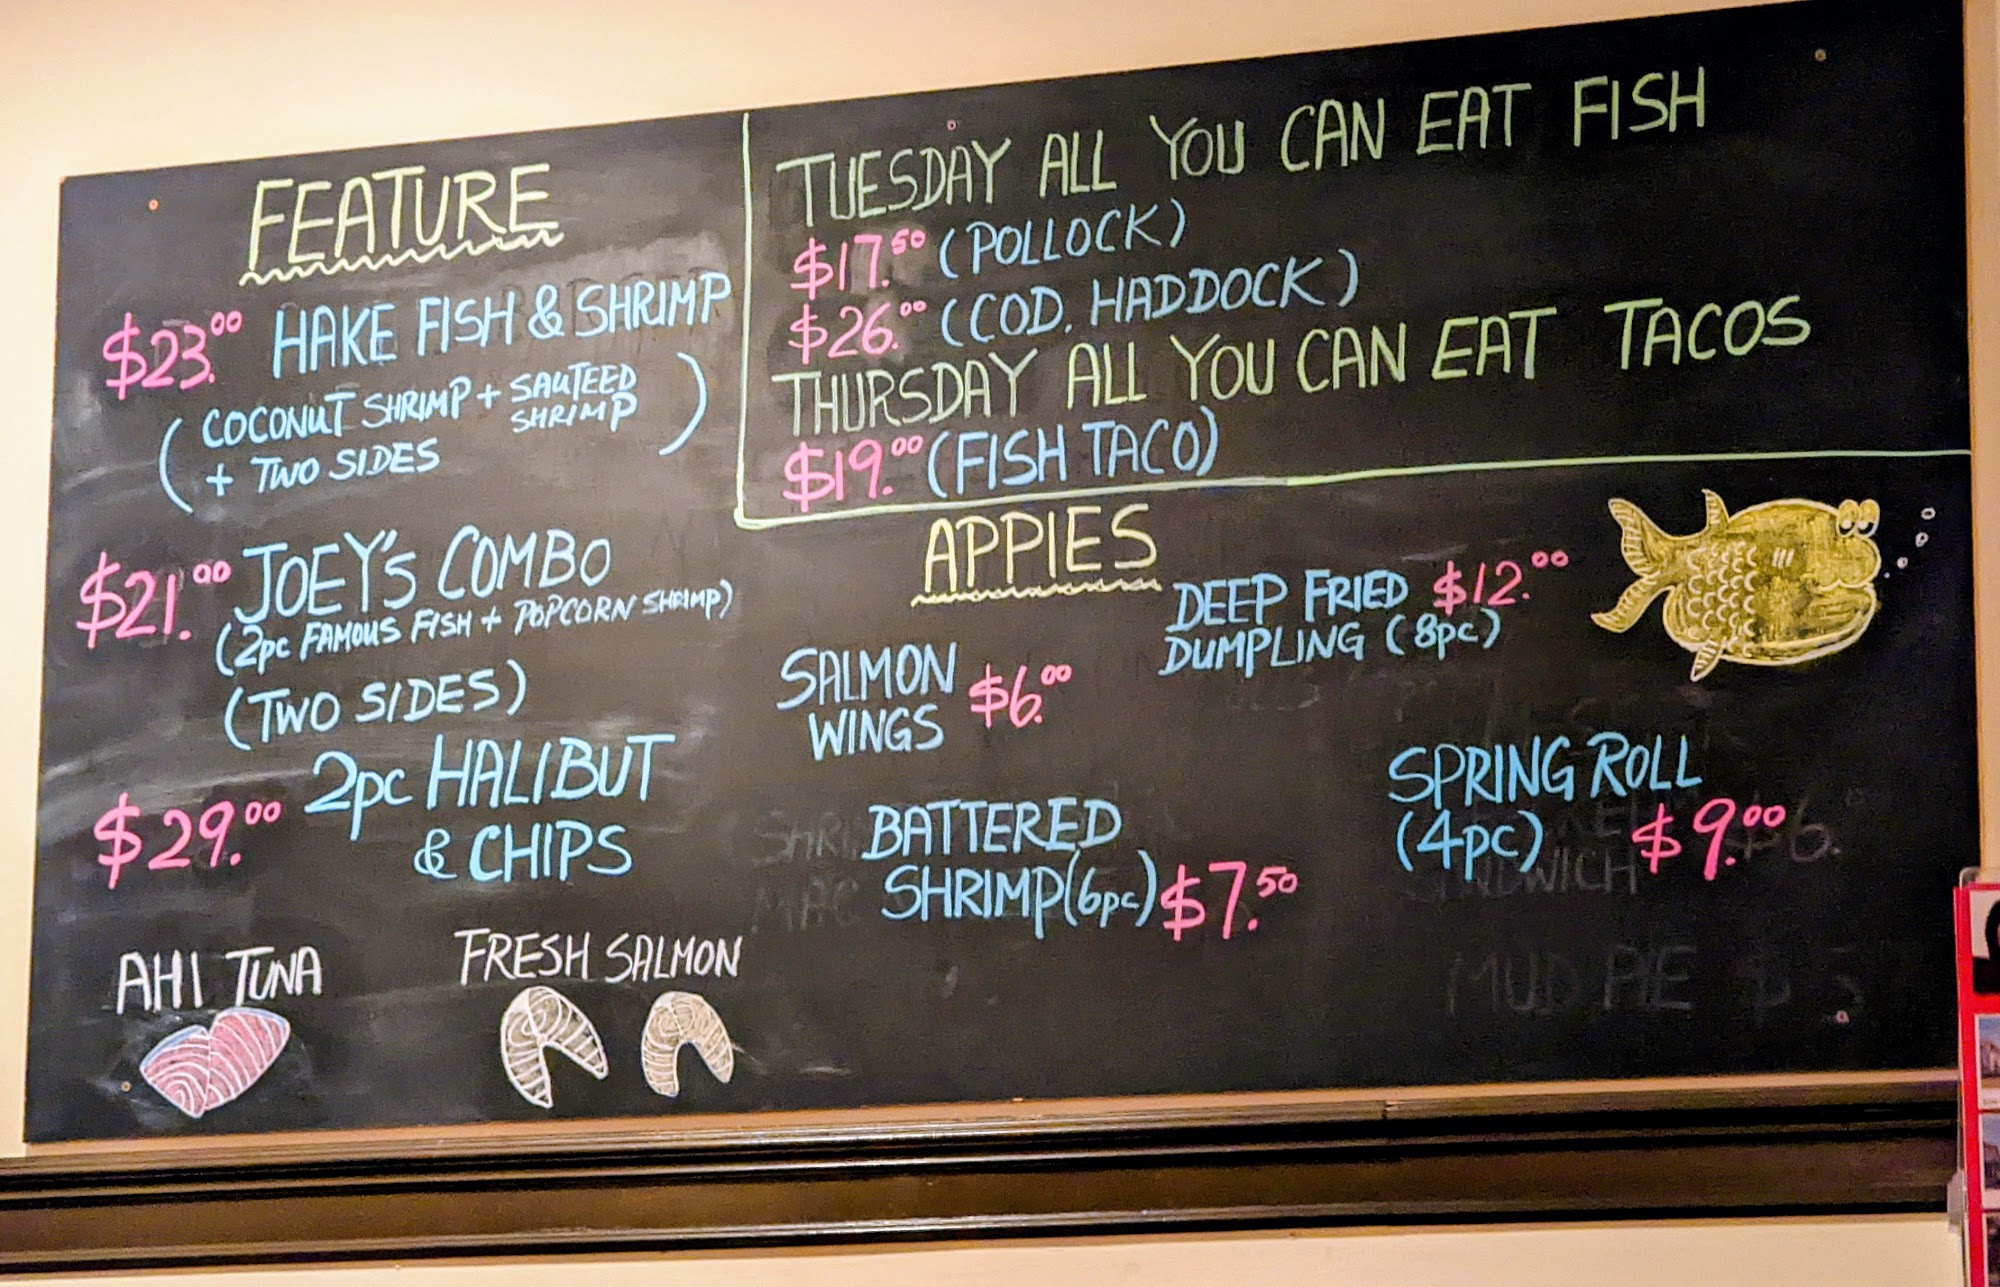 FEATURE
$23.00 HAKE FISH & SHRIMP
(COCONUT SHRIMP + SAUTEED SHRIMP
+ TWO SIDES)
$21.00 JOEY'S COMBO
(2pc FAMOUS FISH + POPCORN SHRIMP)
(TWO SIDES)
$29.00 2pc HALIBUT
& CHIPS
AHI TUNA
FRESH SALMON
TUESDAY ALL YOU CAN EAT FISH
$17.50 (POLLOCK)
$26.00 (COD. HADDOCK)
THURSDAY ALL YOU CAN EAT TACOS
$19.00 (FISH TACO)
APPIES
SALMON
WINGS $6.00
DEEP FRIED $12.00
DUMPLING (8pc)
BATTERED
SHRIMP (6pc) $7.50
SPRING ROLL
(4pc) $9.00
SANDWICH
MUD PIE